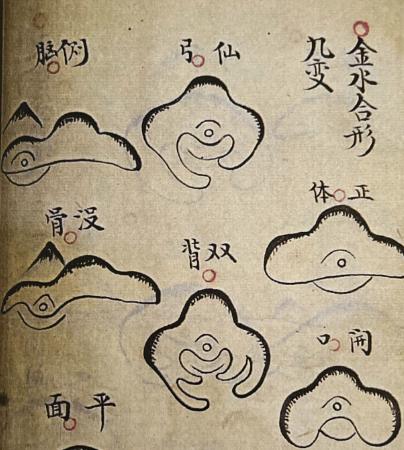 金水合形
九变
正体
開口
仙弓
双
侧脑
没骨
平面